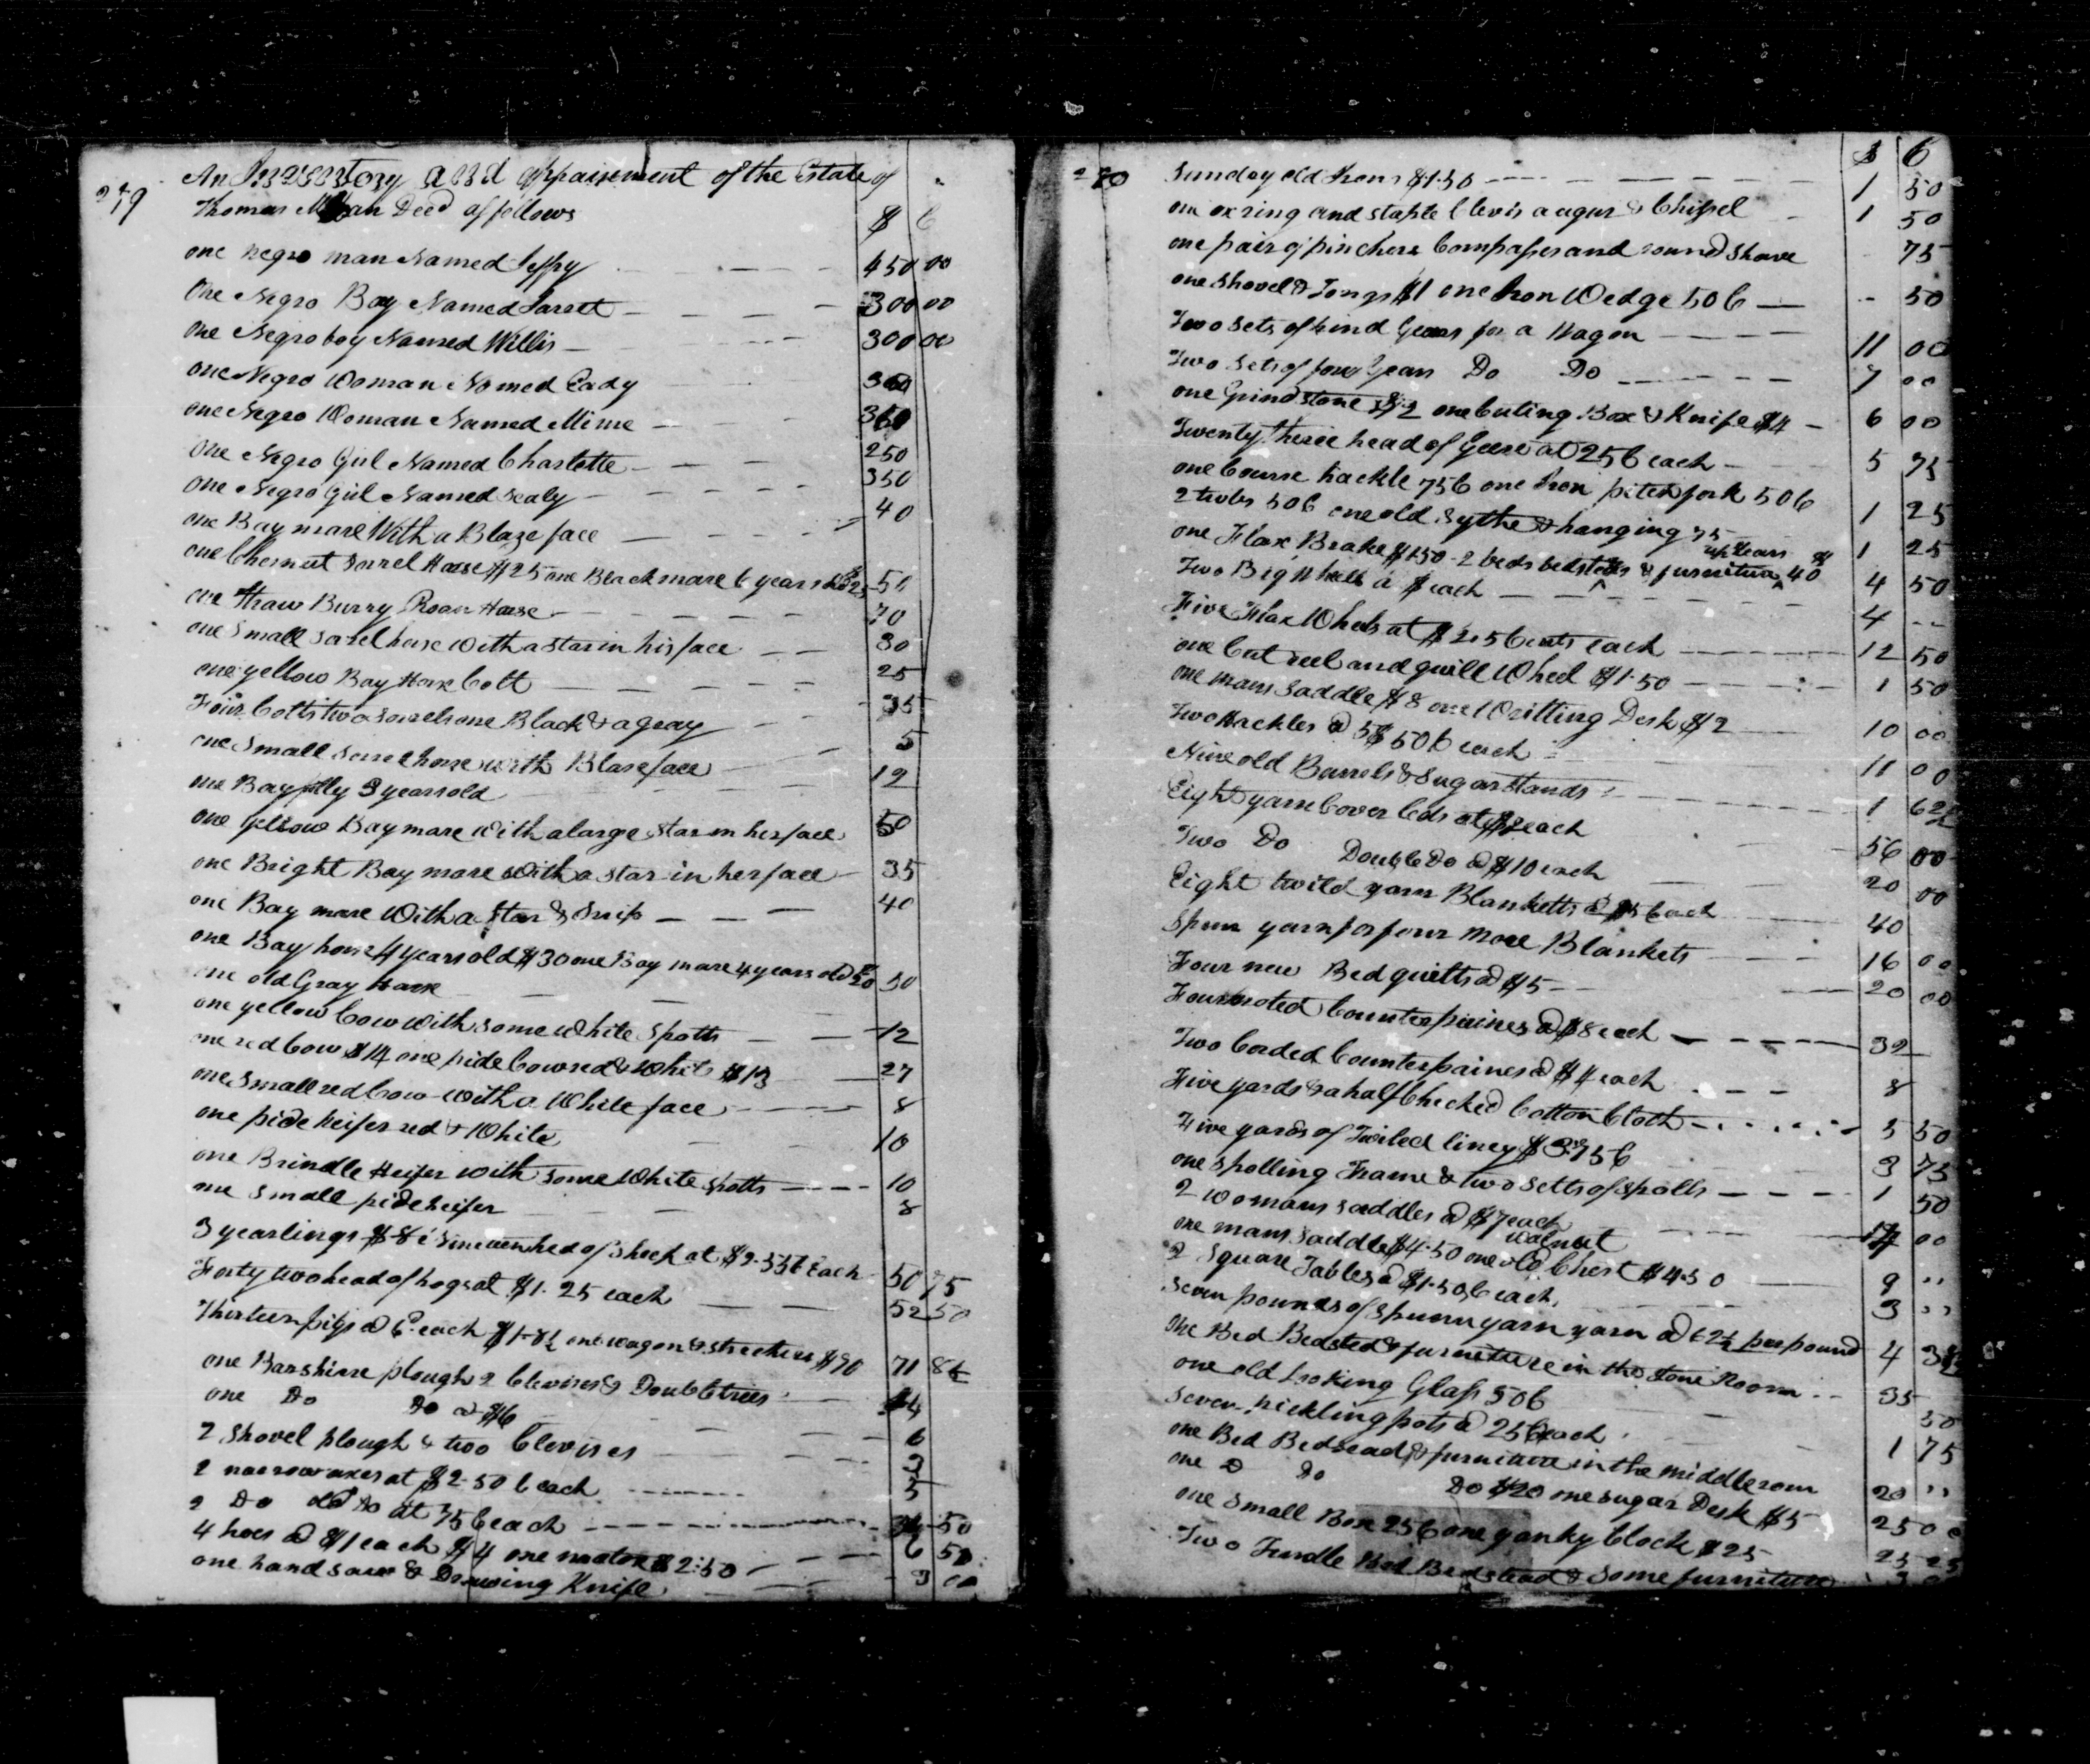 249
An Inventory and appaisement of the Estate of
Thomas Decd as follows $ C
one negro man Named Jeffry 450 00
One Negro Boy Named Jarett 300 00
one Negro boy Named Willis 300 00
one Negro Woman Named Cady
one Negro Woman Named Mime
One Negro Girl Named Charlotte 250
one Negro Girl Named Sealy 350
one Bay mare With a Blaze face 40
one Chesnut Sorrel Horse $25 one Black mare 6 years old 25 50
one Straw Burry Roan Horse 70
one Small Sorrel horse with a star in his face 30
one yellow Bay Horse Colt 25
Four Colts two Sorrels one Black & a gray 35
one Small Sorrel horse with Blase face 5
one Bay filly 3 years old 12
one yellow Bay mare with a large star in her face 50
one Bright Bay mare with a star in her face 35
one Bay mare With a Star & Snip 40
one Bay horse 4 years old $30 one Bay mare 4 years old $20 50
one old Gray Horse
one yellow Cow with some white Spotts 12
one red Cow $14 one pide Cow red & White $13 27
one Small red Cow with a White face 8
one pide heifer red & White 10
one Brindle Heifer with some White spotts 10
one Small pide heifer 8
3 yearlings $8 hed of Sheep at each 50 75
Forty two head of hogs at $1.25 each 52 50
Thirteen pigs @ each one wagon & $90 71
one Barshire plough 2 Clevises & Doubletrees
one Do Do @ $6 6
2 Shovel plough & two Clevises 3
2 narrow axes at $2.50 C each 5
2 Do old Do at 75 C each 50
4 hoes @ $1 each $4 one mattox $2.50 6 50
one hand saw & Drawing Knife 3 00
270 $ C
Sunday old Irons $1.50 1 50
one ox ring and staple Clevis augur & Chissel 1 50
one pair of pinchers Compasses and round Shave 75
one Shovel & Tongs $1 one Iron Wedge 50 C 50
Two Sets of hind Gears for a Wagon 11 00
Two Sets of four Gears Do Do 7 00
one Grindstone $2 one Cuting Box & Knife $4 6 00
Twenty three head of Geese at 25 C each 5 75
one Course hackle 75 C one Iron pitchfork 50 C 1 25
2 tubs 50 C one old Sythe & hanging 75 1 25
one Flax Brake $1.50 2 beds bedsteds & furniture 40 4 50
Two Big Wheels a $ each 4
Five Flax Wheels at $2.5 Cents each 12 50
one Cut reel and quill Wheel $1.50 1 50
one mans Saddle $8 one Writting Desk $2 10 00
Two Hackles @ 5$ 50 C each 11 00
Nine old Barrels & Sugar Stands 1 62½
Eight yarn Cover leds at each 56 00
Two Do Double Do @ $10 each 20 00
Eight twild yarn Blanketts @ $5 Each 40
Spun yarn for four more Blankets 16 00
Four new Bed quilts @ $5 20 00
Four noted Counterpaines @ $8 each 32
Two Corded Counterpaines @ $4 each 8
Five yards & a half Checked Cotton Cloth 5 50
Five yards of Twiled linsy $3.75 C 3 75
one Spolling Frame & two Setts of spolls 1 50
2 womans saddles @ $7 each 00
one mans Saddle $4.50 one old walnut Chest $4.50 9 "
2 Square Tables @ $1.50 C each 3 "
Seven pounds of spunn yarn yarn @ 62½ per pound 4
One Bed Bedsted & furniture in the stone Room 35
one old Looking Glass 50 C 50
Seven pickling pots @ 25 C each 1 75
one Bed Bedstead & furniture in the middle room 20 "
one D Do Do $20 one sugar Desk $5 25 00
one Small Box 25 C one yanky Clock $25 25 25
Two Trundle Bed Bedstead & some furniture